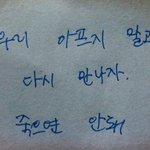 우리 아프지 말고
다시 만나자.
죽으면 안돼